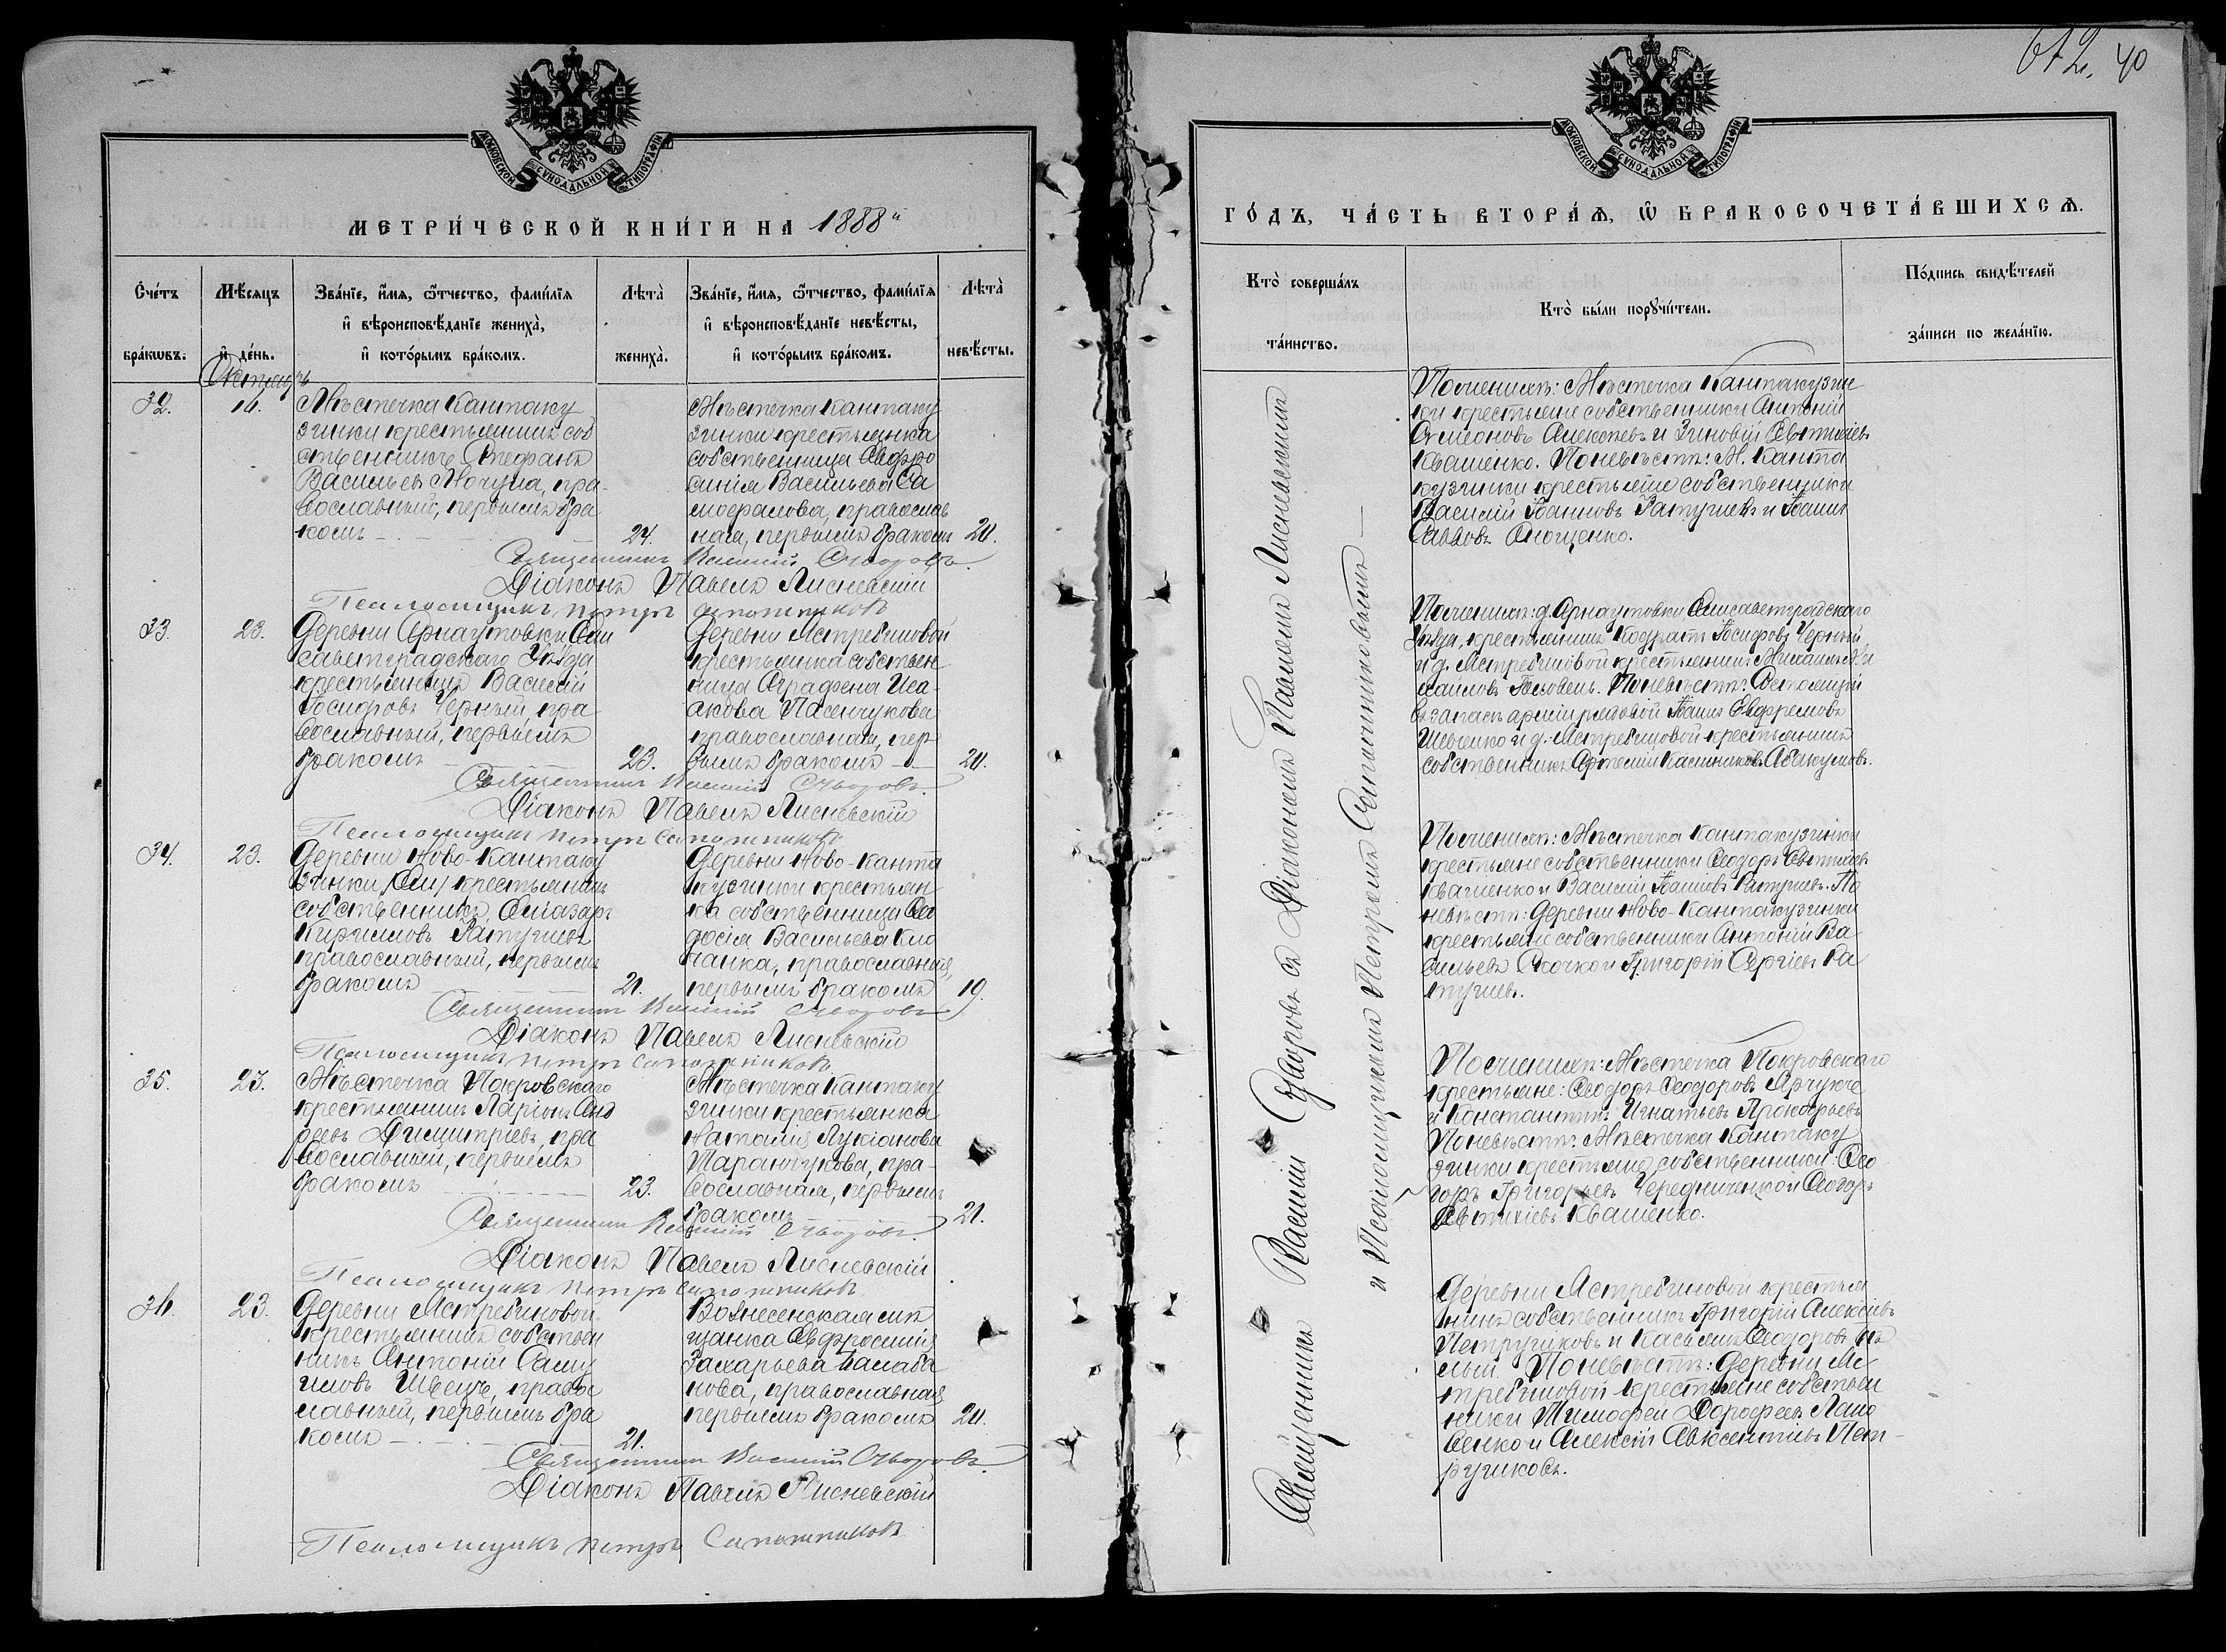 612. 40
МОСКОВСКОЙ СУНОДАЛЬНОЙ ТИПОГРАФІИ
МЕТРИ́ЧЕСКОЙ КНИ́ГИ НА 1888
Сче́тъ бра́кωвъ.
Мѣ́сяцъ и҆ де́нь.
Зва́нїе, и҆́мѧ, ѻ҆́тчество, фами́лїѧ
и҆ вѣроисповѣ́данїе жениха̀,
и҆ кото́рымъ бра́комъ.
Лѣта̀ жениха̀.
Зва́нїе, и҆́мѧ, ѻ҆́тчество, фами́лїѧ
и҆ вѣроисповѣ́данїе невѣ́сты,
и҆ кото́рымъ бра́комъ.
Лѣта̀ невѣ́сты.
Октябрь
32.
Мѣстечка Кантаку
зинки крестьянинъ соб
ственникъ Стефанъ
Васильевъ Мочула, пра-
вославный, первымъ бра
комъ
24.
Мѣстечка Кантаку
зинки крестьянка
собственница Евфро
синія Васильева Са
мофалова, православ
ная, первымъ бракомъ
Священникъ Василій
Діаконъ Павелъ Лисневскій
Псаломщикъ Петръ Сапожниковъ
33.
23.
Деревни Арнаутовки Ели
саветградскаго Уѣзда
крестьянинъ Василій
Іосифовъ Черный, пра
вославный, первымъ
бракомъ
23.
Деревни Ястребиновой
крестьянка собствен
ница Аграфена Иса-
акова Пасенчукова
православная, пер
вымъ бракомъ
Священникъ Василій
Діаконъ Павелъ Лисневскій
Псаломщикъ Петръ Сапожниковъ
34.
23.
Деревни Ново-Кантаку
зинки крестьянинъ
собственникъ Елиазаръ
Кирилловъ Ратушнъ
православный, первымъ
бракомъ
21.
Деревни Ново-Канта
кузинки крестьян
ка собственница Фео
досія Васильева
православная,
первымъ бракомъ
19.
Священникъ Василій
Діаконъ Павелъ Лисневскій
Псаломщикъ Петръ Сапожниковъ
35.
23.
Мѣстечка Покровскаго
крестьянинъ Ларіонъ Анд
реевъ Димитріевъ, пра
вославный, первымъ
бракомъ
23.
Мѣстечка Кантаку
зинки крестьянка
Наталія Лукіанова
Паранчукова, пра-
вославная, первымъ
бракомъ
21.
Священникъ Василій
Діаконъ Павелъ Лисневскій
Псаломщикъ Петръ Сапожниковъ
36.
23.
Деревни Ястребиновой
крестьянинъ собствен
никъ Антоній Саму
иловъ Швецъ, правос
лавный, первымъ бра
комъ
21.
Вознесенская мѣ
щанка Евфросинія
Захарьева Балаба
нова, православная
первымъ бракомъ
Священникъ Василій
Діаконъ Павелъ Лисневскій
Псаломщикъ Петръ Сапожниковъ
МОСКОВСКОЙ СУНОДАЛЬНОЙ ТИПОГРАФІИ
ГО́ДЪ, ЧА́СТЬ ВТОРА́Ѧ, Ѡ҆ БРАКОСОЧЕТА́ВШИХСѦ.
Кто̀ соверша́лъ
та́инство.
Кто̀ бы́ли порꙋчи́тели.
По́дпись свидѣ́телей
за́писи по жела́нїю.
Священникъ Василій съ Діакономъ Павломъ Лисневскимъ
и Псаломщикомъ Петромъ Сапожниковымъ
По женихѣ: Мѣстечка Кантакузин
ки крестьяне собственники Антоній
Симеоновъ Алексѣевъ и Зиновій Евтихіевъ
Квашенко. По невѣстѣ: М. Канта
кузинки крестьяне собственники
Василій Іоанновъ Ратушнъ и Іоаннъ
Саввовъ Онощенко.
По женихѣ: д. Арнаутовки Елисаветградскаго
Уѣзда, крестьянинъ Кодратъ Іосифовъ Черный
и д. Ястребиновой крестьянинъ Михаилъ Ми
хайловъ. По невѣстѣ: Состоящій
въ запасѣ арміи рядовой Іоаннъ Евфремовъ
Шевченко и д. Ястребиновой крестьянинъ
собственникъ Артемій Абакумовъ.
По женихѣ: Мѣстечка Кантакузинки
крестьяне собственники Феодоръ Евтихіевъ
Квашенко и Василій Іоанновъ Ратушнъ. По
невѣстѣ: Деревни Ново-Кантакузинки
крестьяне собственники Антоній Ва
сильевъ Скочко и Григорій Сергіевъ Ра
тушнъ.
По женихѣ: Мѣстечка Покровскаго
крестьяне: Феодоръ Феодоровъ
и Константинъ Игнатьевъ Прокофьевъ
По невѣстѣ: Мѣстечка Кантаку
зинки крестьяне собственники: Фео
доръ Григорьевъ Чередниченко и Феодоръ
Евтихіевъ Квашенко.
Деревни Ястребиновой крестья
нинъ собственникъ Григорій Алексіевъ
Петруниковъ и Касьянъ Феодоровъ Бѣ
лый. По невѣстѣ: Деревни Яс
требиновой крестьяне собствен
ники Тимофей Дорофеевъ
и Алексій Авксентіевъ Пет-
руниковъ.